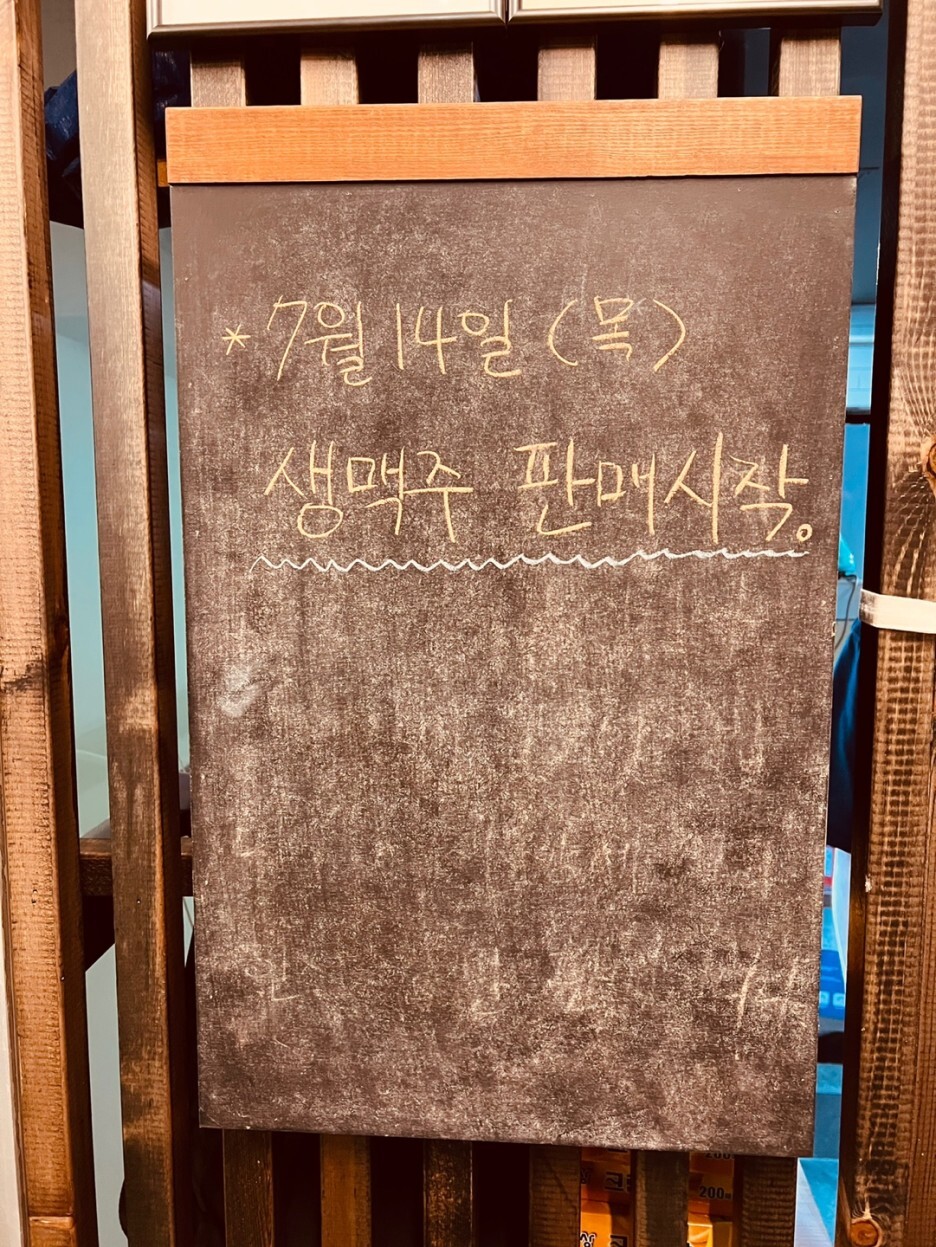 * 7월 14일 (목)
생맥주 판매시작。
200